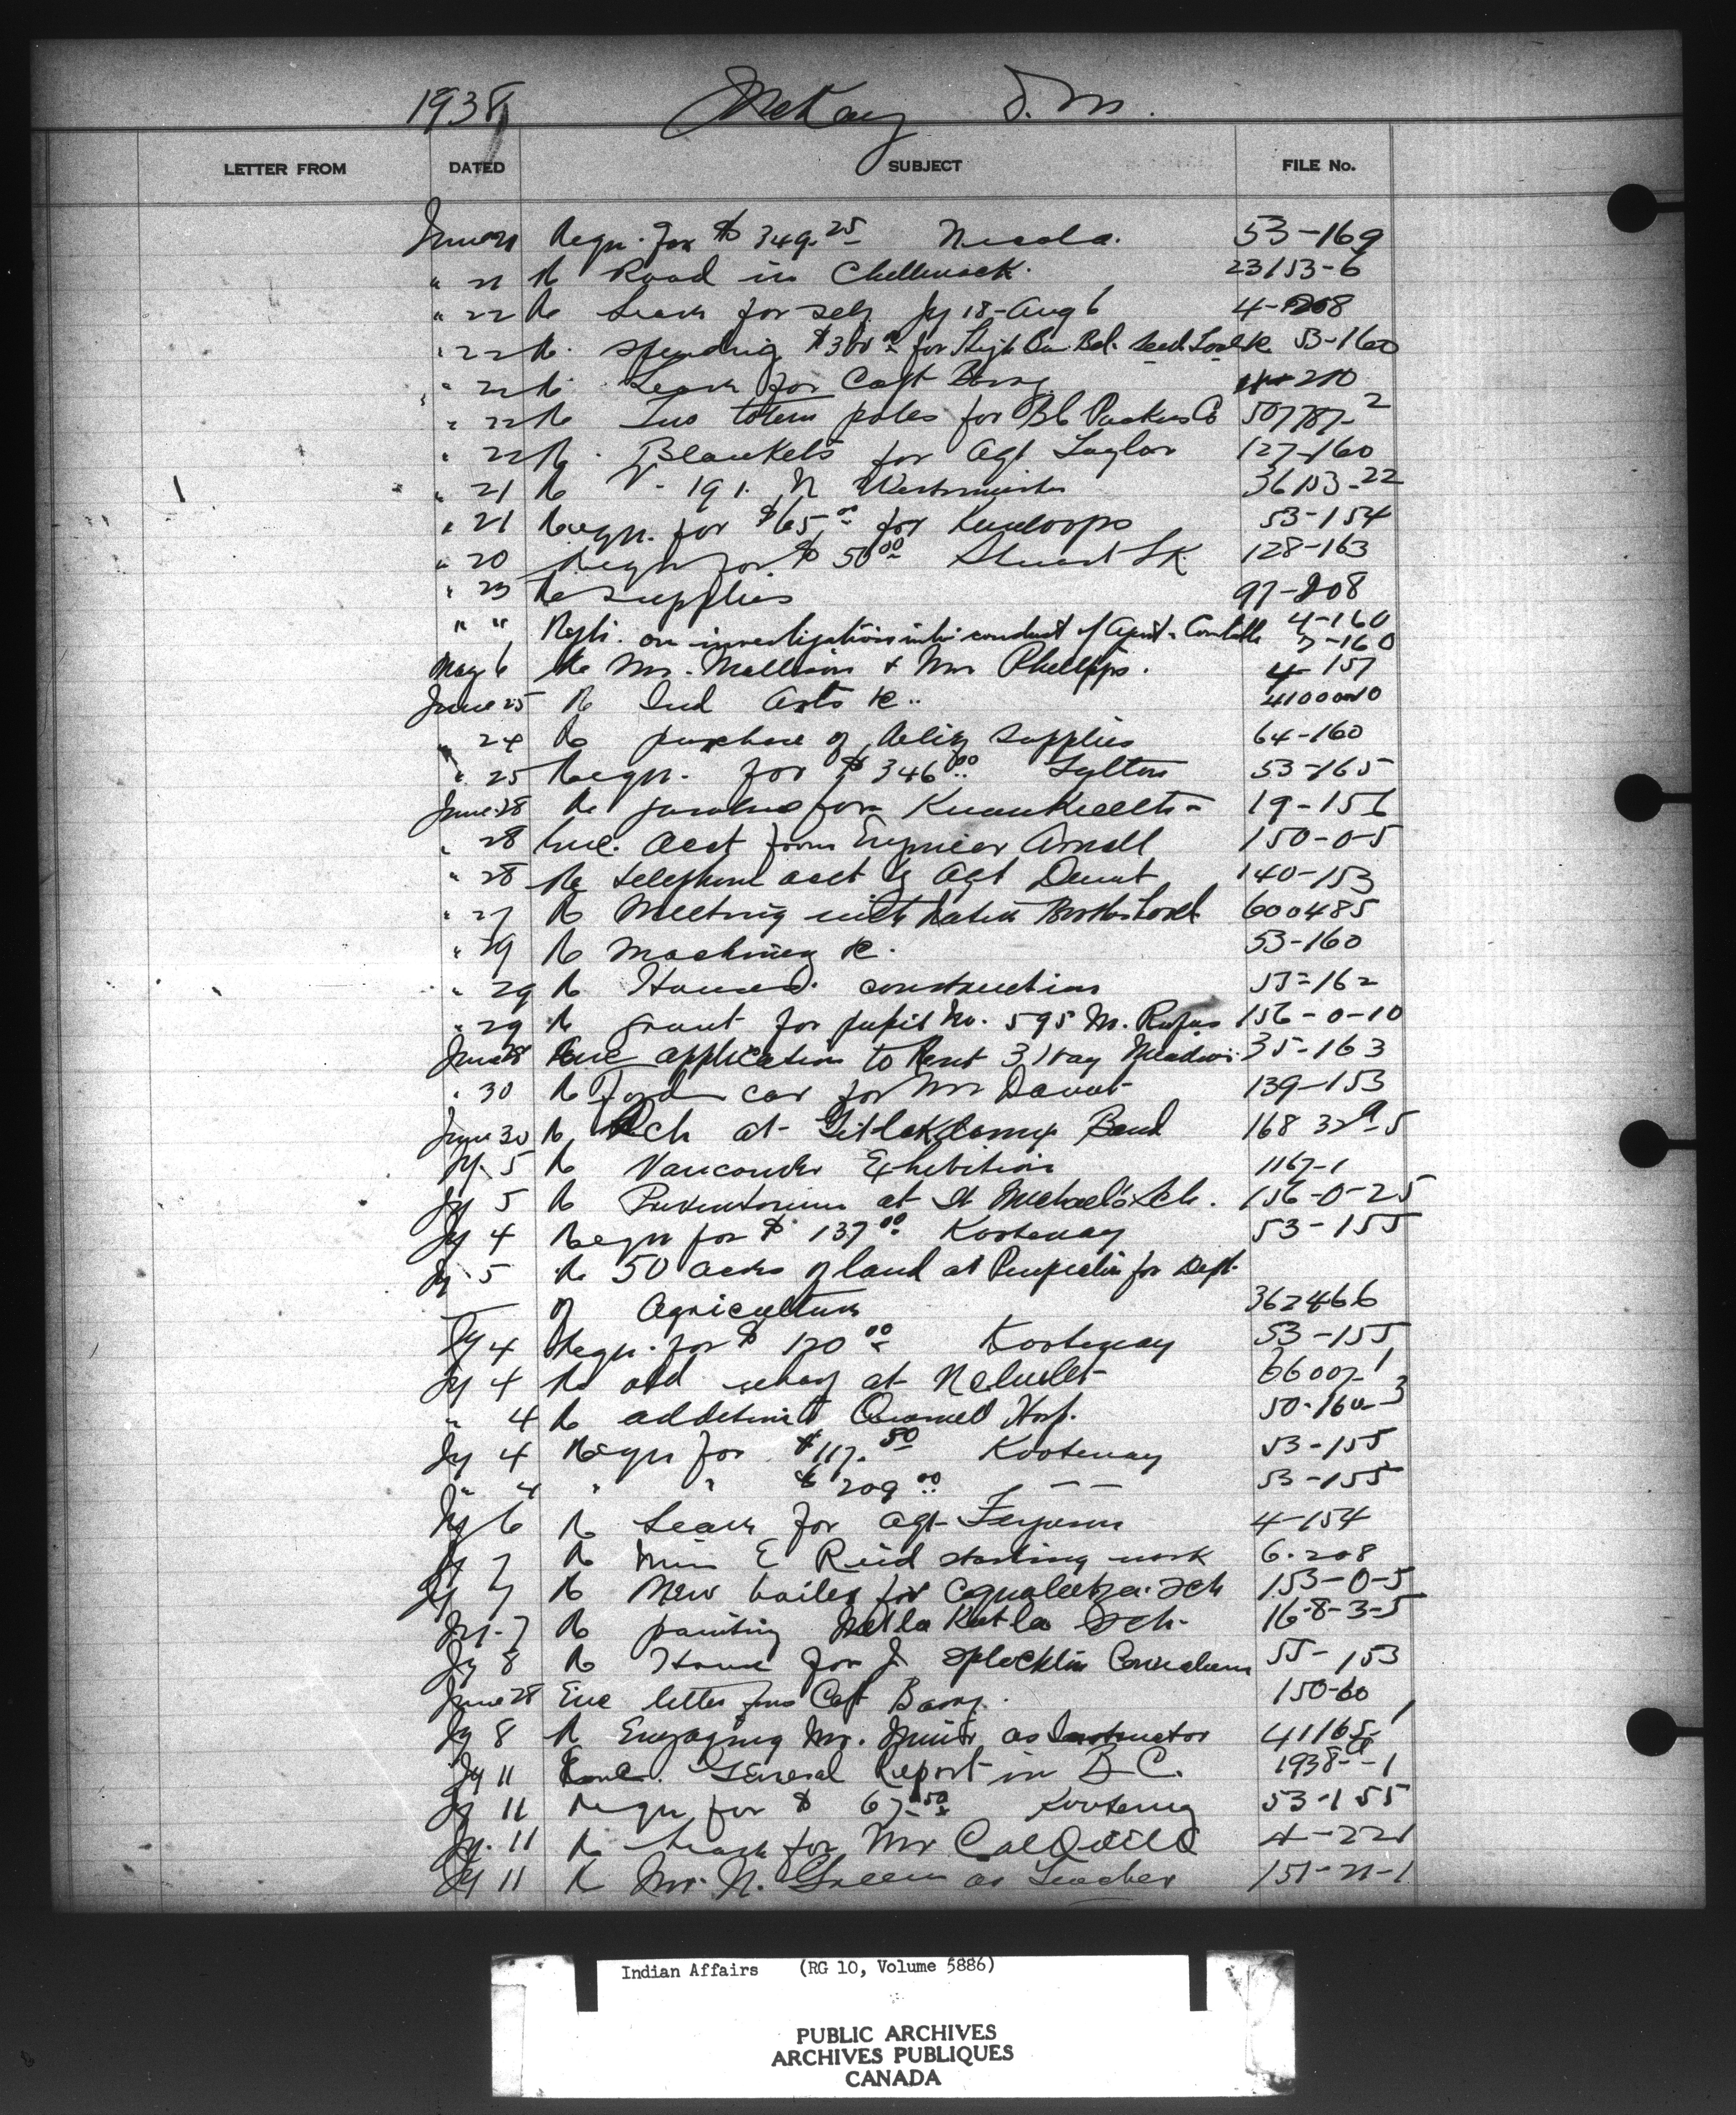 1938 McKay D. M.
LETTER FROM DATED SUBJECT FILE No.
June 21 Requ. for $349.25 Nicola. 53-169
" 21 Re Road in Chilliwack. 23153-6
" 22 Re Leave for self Jy 18-Aug 6 4-208
" 22 Re. spending $300 for 53-160
" 22 Re. Leave for Capt Barry 210
" 22 Re Two totem poles for BC Packers Co 507787-2
" 22 Re. Blankets for Agt Taylor 127-160
" 21 Re V-191. N Westminster 36153-22
" 21 Requ. for $65.00 for Kamloops 53-154
" 20 Requ for $50.00 Stuart Lk 128-163
" 23 Re Supplies 97-208
" " on investigation into conduct of Agent 4-160
3-160
May 6 Re Mr. Mallinson & Mr Phillips. 4-157
June 25 Re Ind Arts &c..
" 24 Re purchase of Relief Supplies 64-160
" 25 Requ. for $346.00 Lytton 53-165
June 28 Re for 19-156
" 28 Enc. acct from Engineer Arnall 150-0-5
" 28 Re telephone acct of Agt Daunt 140-153
" 27 Re Meeting with Native Brotherhood 600485
" 29 Re Machinery &c. 53-160
" 29 Re Houses. construction 55-162
" 29 Re grant for pupil No. 595 M. Rufus 156-0-10
June 28 Enc application to Rent 3 Hay Meadows. 35-163
" 30 Re Ford car for Mr Daunt 139-153
June 30 Re Sch at Gitlakdamix Band
Jy. 5 Re Vancouver Exhibition 1167-1
Jy 5 Re Preventorium at St Michael's Sch. 156-0-25
Jy 4 Requ for $137.00 Kootenay 53-155
Jy 5 Re 50 acres of land at Penticton for Dept.
of Agriculture 362466
Jy 4 Requ. for $120.00 Kootenay 53-155
Jy 4 Re old at 66007-1
" 4 Re addition to Quesnel Hosp. 50-160-3
Jy 4 Requ for $117.50 Kootenay 53-155
" 4 " " $209.00 — — 53-155
Jy 6 Re Leave for Agt Ferguson 4-154
Jy 7 Re Miss E Reid starting work 6-208
Jy 7 Re New boiler for Coqualeetza Sch 153-0-5
Jy. 7 Re painting Metla Katla Sch. 16-8-3-5
Jy 8 Re House for J. 55-153
June 28 Enc letter from Capt Barry. 150-60
Jy 8 Re Engaging Mr. as Instructor
Jy 11 Enc. General Report in B C.
Jy 11 Requ for $67.50 Kootenay 53-155
Jy. 11 Re Leave for Mr 4-221
Jy 11 Re Mr. N. Green as Teacher 151-21-1
Indian Affairs (RG 10, Volume 5886)
PUBLIC ARCHIVES
ARCHIVES PUBLIQUES
CANADA